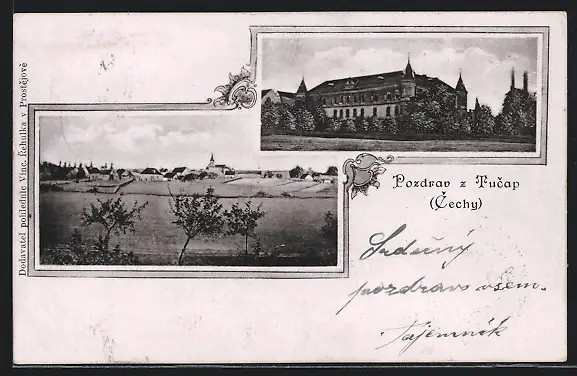 Dodavatel pohlednic Vinc. Řehulka v Prostějově
Pozdrav z Tučap
(Čechy)
Srdečný
pozdrav všem.
tajemník